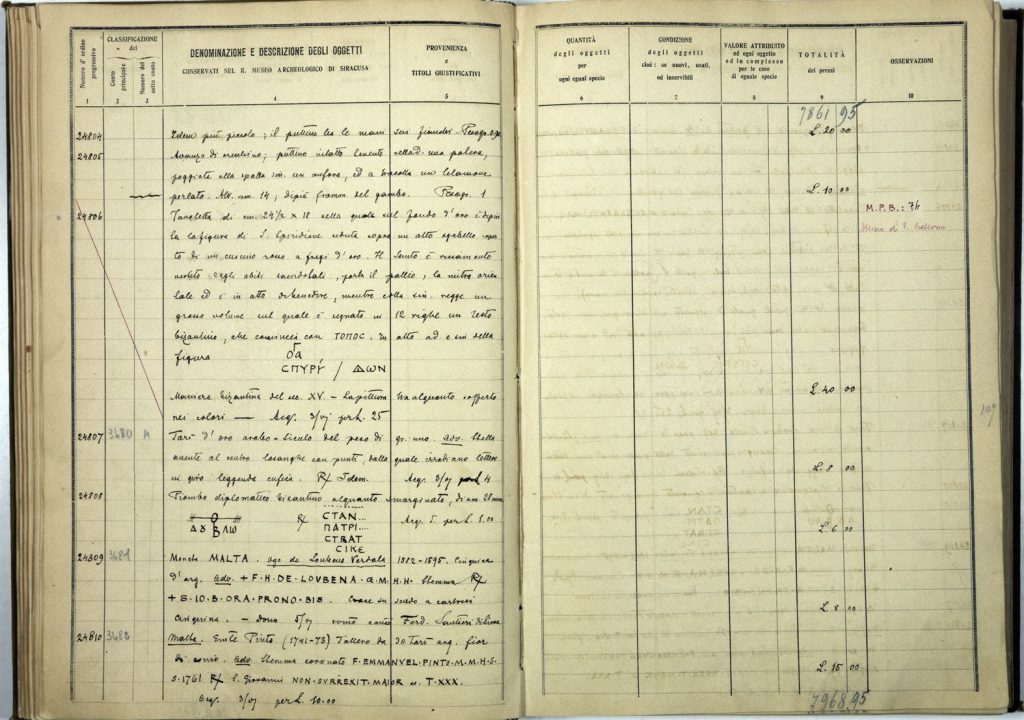 Numero d'ordine progressivo
CLASSIFICAZIONE del
Conto principale
Numero del sotto conto
DENOMINAZIONE E DESCRIZIONE DEGLI OGGETTI
CONSERVATI NEL R. MUSEO ARCHEOLOGICO DI SIRACUSA
PROVENIENZA
e
TITOLI GIUSTIFICATIVI
1 2 3 4 5
24804 Idem più piccolo; il puttino ha le mani
24805 Avanzo di orecchino; puttino
poggiata alla spalla sin. un anfora, ed a
perlato. Alt. mm. 14; dippiù framm. del gambo.
24806 Tavoletta di cm. 24½ x 18 nella quale sul fondo d'oro è dipin
ta la figura di S. Spiridione seduta sopra un alto sgabello
to di un cuscino rosso a fregi d'oro. Il Santo è riccamente
vestito degli abiti sacerdotali, porta il pallio, la mitra orien
tale ed è in atto di benedire, mentre colla sin. regge un
grosso volume sul quale è segnato in 12 righe un testo
bizantino, che comincia con ΤΟΠΟC. In alto ad e sin della
figura
CΠΥΡΥ / ΔΩΝ
Maniera bizantina del sec. XV. – La pittura ha alquanto sofferto
nei colori — Acq. 3/07 per L. 25
24807 3480 A Tarì d'oro arabo-siculo del peso di gr. uno. Adv. Stella
avente al centro losanghe con punti, dalla quale irradiano lettere
in giro leggenda cufica. R/ Idem. Acq. 3/07 4
24808 Piombo diplomatico bizantino alquanto smarginato, diam. 28 mm.
R/ CTAN...
ΠΑΤΡΙ....
CTRAT
CIKE
Acq. per L. 5.00
24809 3481 Moneta MALTA. Ugo de Loubeux Verdala 1582-1595. Cinquina
d'arg. Adv. + F·H·DE·LOVBENA·Q·M H·H· Stemma R/
+ S·IO·B·ORA·PRO·NOBIS. Croce su scudo a cartocci
Cinquina. – Dono 5/07
24810 3482 Malta. Emle Pinto (1741-73) Tallero da 30 Tarì arg. fior
di conio. Adv. Stemma coronato F·EMMANVEL·PINTO·M·M·H·S·
S·1761 R/ S. Giovanni NON·SVRREXIT·MAIOR T·XXX.
Acq. 3/07 per L. 10.00
QUANTITÀ
degli oggetti
per
ogni egual specie
6
CONDIZIONE
degli oggetti
cioè: se nuovi, usati,
od inservibili
7
VALORE ATTRIBUITO
ad ogni oggetto
ed in complesso
per le cose
di eguale specie
8
TOTALITÀ
dei prezzi
9
OSSERVAZIONI
10
7861 95
L. 20 00
L. 10 00
M.P.B.: 74
L. 40 00
L. 8 00
L. 6 00
L. 8 00
L. 15 00
7968.95
107